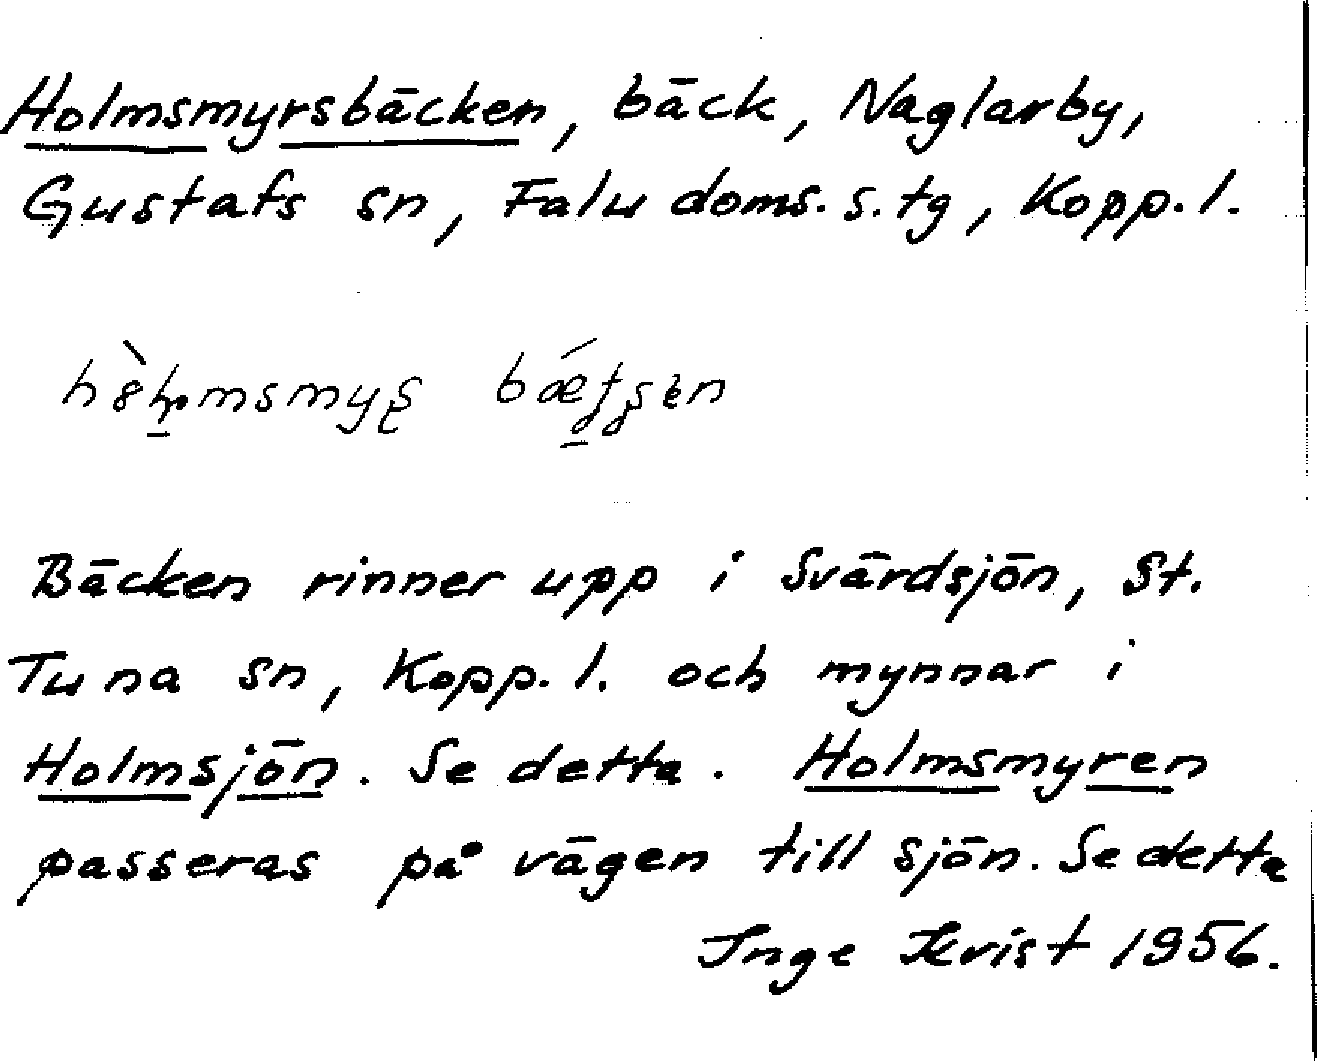 Holmsmyrsbäcken, bäck, Naglarby,
Gustafs sn, Falu doms. s. tg, Kopp. l.
Bäcken rinner upp i Svärdsjön, St.
Tuna sn, Kopp. l. och mynnar i
Holmsjön. Se detta. Holmsmyren
passeras på vägen till sjön. Se detta
Inge Kvist 1956.